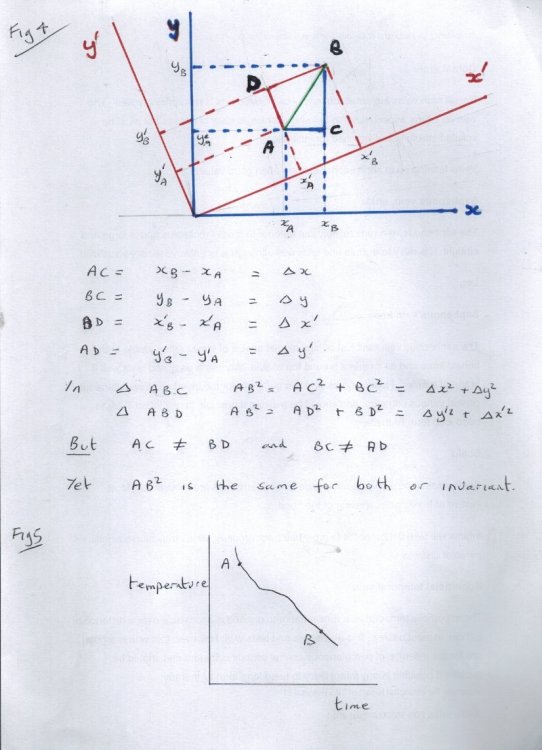 Fig 4
y'
y
x'
B
y_B
D
y'_B
y_A
A
C
y'_A
x'_A
x'_B
x_A
x_B
x
AC = x_B - x_A = Δx
BC = y_B - y_A = Δy
BD = x'_B - x'_A = Δx'
AD = y'_B - y'_A = Δy'
In Δ ABC AB² = AC² + BC² = Δx² + Δy²
Δ ABD AB² = AD² + BD² = Δy'² + Δx'²
But AC ≠ BD and BC ≠ AD
Yet AB² is the same for both or invariant.
Fig 5
A
temperature
B
time